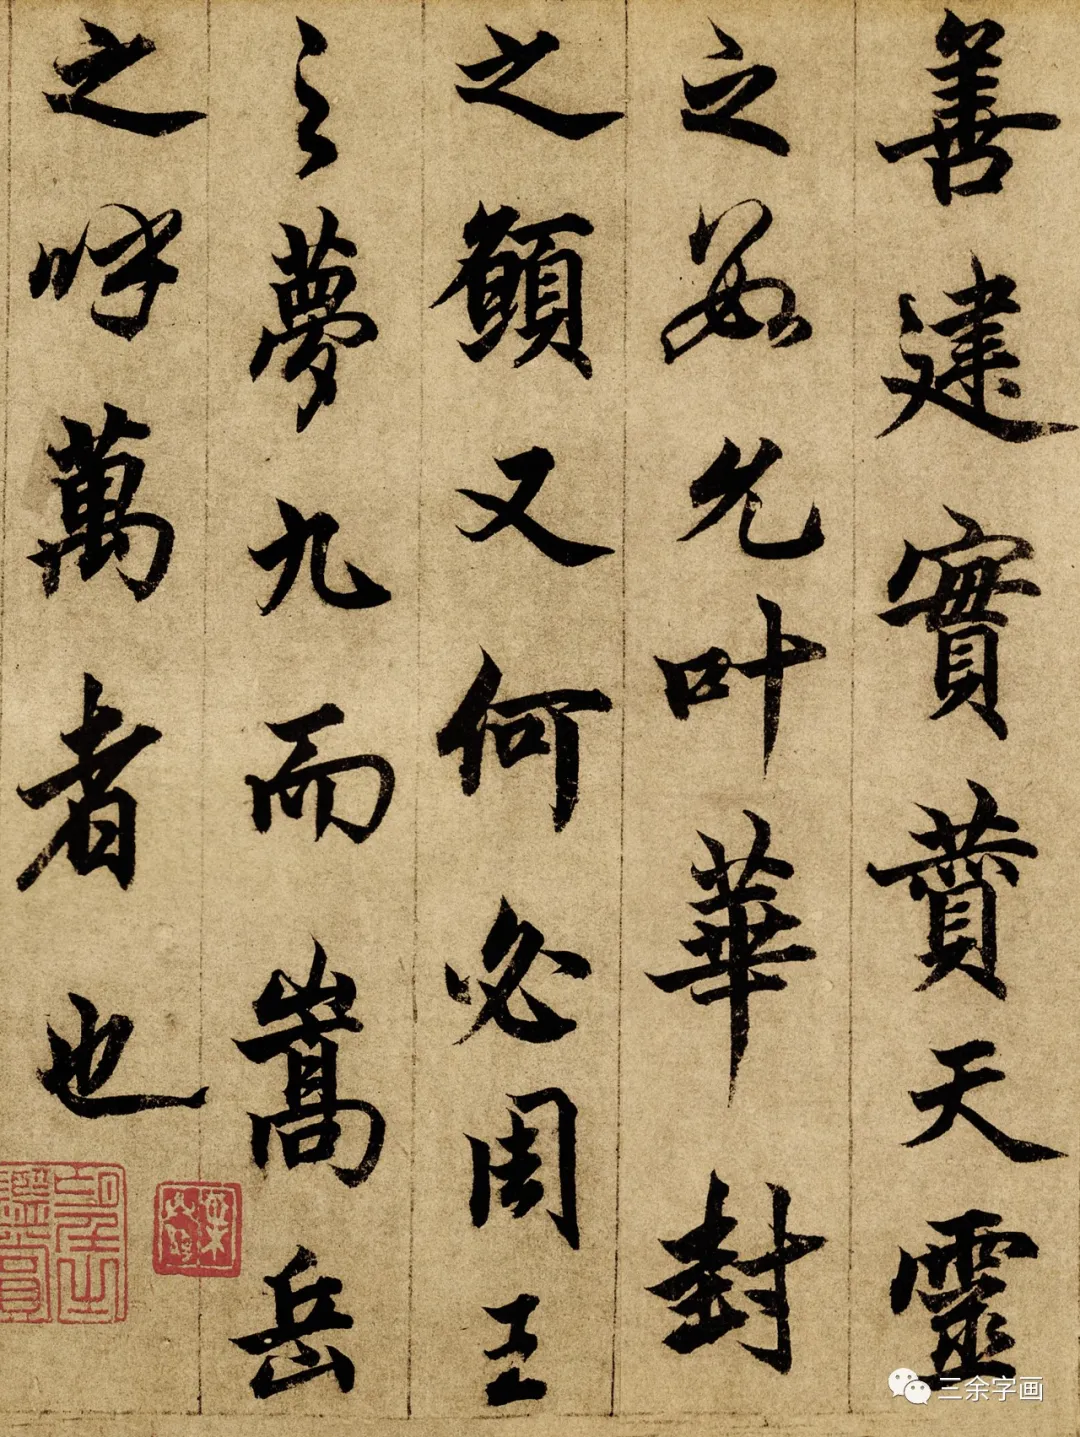 善建實賁天靈
之貺允叶華封
之願又何必周王
之夢九而嵩岳
之呼萬者也
三余字画